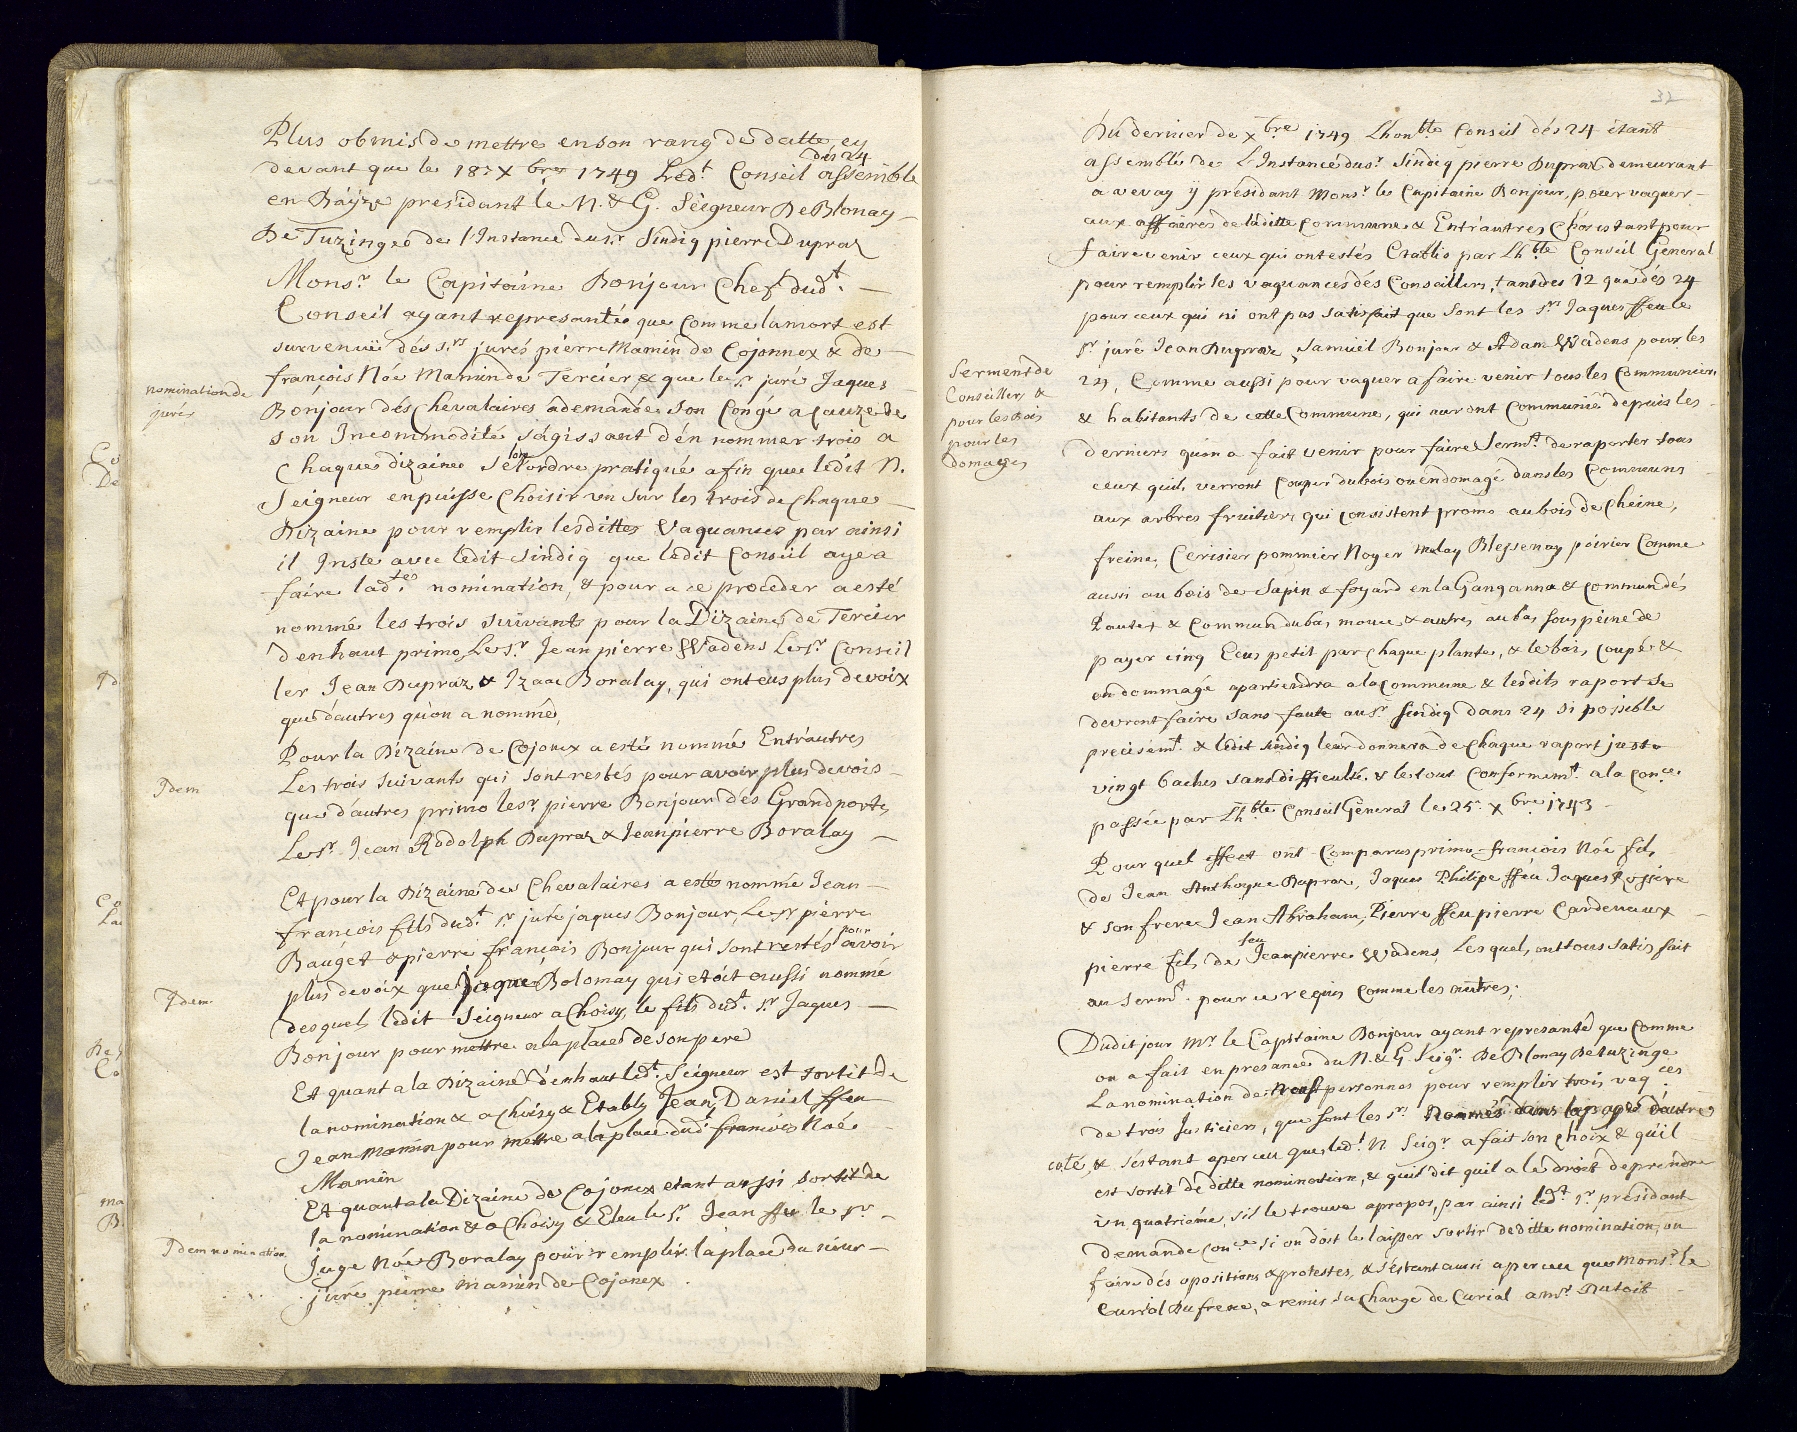 Plus obmis de mettre en son rang de datte, cy
devant que le 18e Xbre 1749 Led.t Conseil des 24 assemblé
en Bäÿze presidant le N. & G. Seigneur De Blonay
De Tuzinge de l'Instance du sr. Sindiq pierre Dupraz
Mons.r le Capitaine Bonjour Chef dud.t
Conseil ayant representés que comme la mort est
survenuë dés s.rs jurés pierre Mamin de Cojonnex & de
françois Nóé Mamin de Tercier & que le sr juré Jaques
nomination de
jurés
Bonjour dés Chevalaires a demandé son Congé a cauze de
son Incommodité, s'agissant d'én nommer trois a
Chaque dizaine selon l'ordre pratiqué afin que ledit N.
Seigneur en puisse Choisir un sur les trois de Chaque
Dizaine pour remplir lesdittes Vaquances par ainsi
il Inste avec ledit Sindiq que ledit Conseil aye a
faire lad.te nomination, & pour a ce proceder a esté
nommé les trois suivants pour la Dizaine de Tercier
d'enhaut primo Le sr. Jean pierre Wadens Le sr. Conseil
ler Jean Dupraz & Izaac Boralay, qui ont eus plus de voix
que d'autres qu'on a nommé,
Pour la Dizaine de Cojonex a esté nommé Entr'autres
Idem
Les trois suivants qui sont restés pour avoir plus de voix
que d'autres primo le sr. pierre Bonjour dés Grandporte,
Le sr. Jean Rodolph Dupraz & Jean pierre Boralay
Et pour la Dizaine des Chevalaires a esté nommé Jean
françois fils dud.t sr. juré jaques Bonjour, Le sr pierre
Bauget & pierre françois Bonjour qui sont restés pour avoir
plus de voix que Jaque Bolomay qui etoit aussi nommé
Idem
desquels ledit Seigneur a Choisy le fils dud.t sr. Jaques
Bonjour pour mettre a la place de son pere
Et quant a la Dizaine d'enhaut led.t Seigneur est sortit de
la nomination & a Choisy & Etably Jean Daniel ffeu
Jean Mamin pour mettre a la place dud.t françois Noé
Mamin
Et quant a la Dizaine de Cojonex etant aussi sortit de
la nomination & a Choisy & Eleu le sr. Jean ffeu le sr
Idem nomination
Juge Nóé Boralay pour remplir la place du sieur
juré pierre Mamin de Cojonex
32
Du dernier de Xbre 1749 L'honble Conseil dés 24 étant
assemblé de L'Instance du sr. Sindiq pierre Dupraz demeurant
a vevay ÿ présidant Mons.r le Capitaine Bonjour, pour vaquer
aux affaires de laditte Commune & Entr'autres Choses tant pour
faire venir ceux qui ont estés Etablis par L'hble Conseil General
pour remplir les vaquances dés Conseillers, tant des 12 que dés 24
pour ceux qui ni ont pas satisfait que sont les srs Jaques ffeu le
sr juré Jean Dupraz, Samuël Bonjour & Adam Wadens pour les
Serment de
Conseillers &
pour les bois
pour les
domages
24, Comme aussi pour vaquer a faire venir tous les Communiers
& habitants de cette Commune, qui auront Communié depuis les
derniers qu'on a fait venir pour faire Sermt. de raporter tous
ceux quils verront Couper du bois ou endomagé dans les Communs
aux arbres fruitiers qui consistent promo au bois de Cheine,
freine, Cerisier pommier Noyer Melay Blessenay poirier Comme
aussi au bois de Sapin & foyard en la Ganganna & commun dés
Pautex & Commun du bas, & autres au bas sous peine de
payer cinq Ecus petit par Chaque plante, & le bois Coupé &
endommagé apartiendra a la Commune & lesdits raport se
devront faire sans faute au sr. Sindiq dans 24 si possible
précisémt. & ledit Sindiq leur donnera de Chaque raport juste
vingt baches sans difficulté & le tout Conformémt. a la Con.ce
passée par L'hble Conseil Géneral le 25. Xbre 1743
Pour quel effect ont Comparus primo françois Nóé fils
de Jean Anthoyne Dupraz, Jaques Philipe ffeu Jaques Rossire
& son frere Jean Abraham, Pierre ffeu pierre Cardenaux
pierre fils de feu Jean pierre Wadens, Lesquels ont tous satisfait
au Sermt. pour ce requis Comme les autres;
Dudit jour Mr le Capitaine Bonjour ayant representé que Comme
on a fait en presance du N. & G. Seigr. De Blonay De Tuzinge
La nomination de Neuf personnes pour remplir trois vaq.ces
de trois Justiciers, que sont les srs Nommés dans la page d'autre
coté, & s'estant aperceu que led.t N. Seigr a fait son Choix & qu'il
est sortit de ditte nomination, & quil dit quil a le droit de prendre
un quatriéme, s'il le trouve apropos, par ainsi led.t sr. présidant
demande Con.ce si on doit le laisser sortir de ditte nomination, ou
faire dés opositions & protestes, & s'estant aussi aperceu que Mons.r le
Curial Dufrene, a remis sa Charge de Curial a Mr. Dutoit